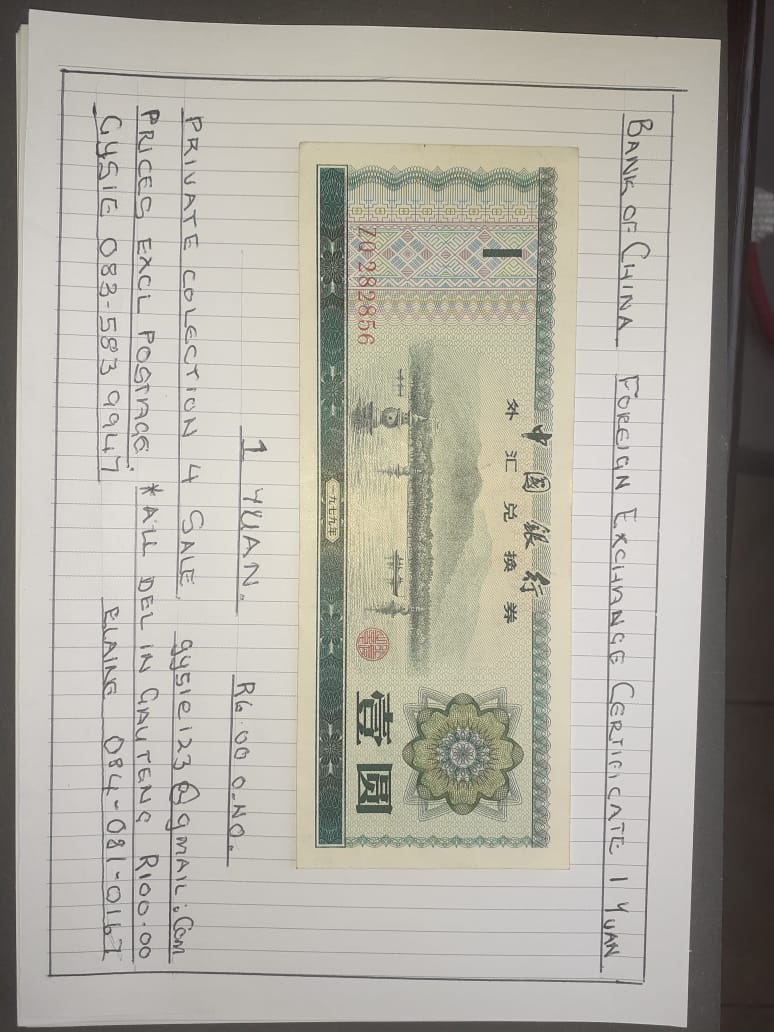 BANK OF CHINA FOREIGN EXCHANGE CERTIFICATE 1 YUAN
中國銀行
外汇兑换券
1
ZQ 282856
一九七九年
壹圆
1 YUAN. R6.00 O.N.O.
PRIVATE COLECTION 4 SALE. gysie123@gmail.com
PRICES EXCL POSTAGE. *ALL DEL IN GAUTENG R100.00
GYSIE 083-583 9947 ELAINE 084-081-0167